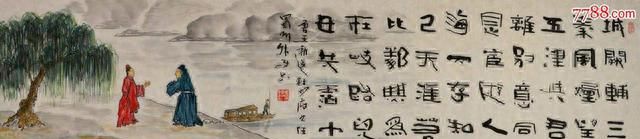 7788.com
城闕輔三
秦風煙望
五津與君
離別意同
是宦遊人
海内存知
己天涯若
比鄰無爲
在岐路兒
女共沾巾
王勃送杜少府之任
蜀州